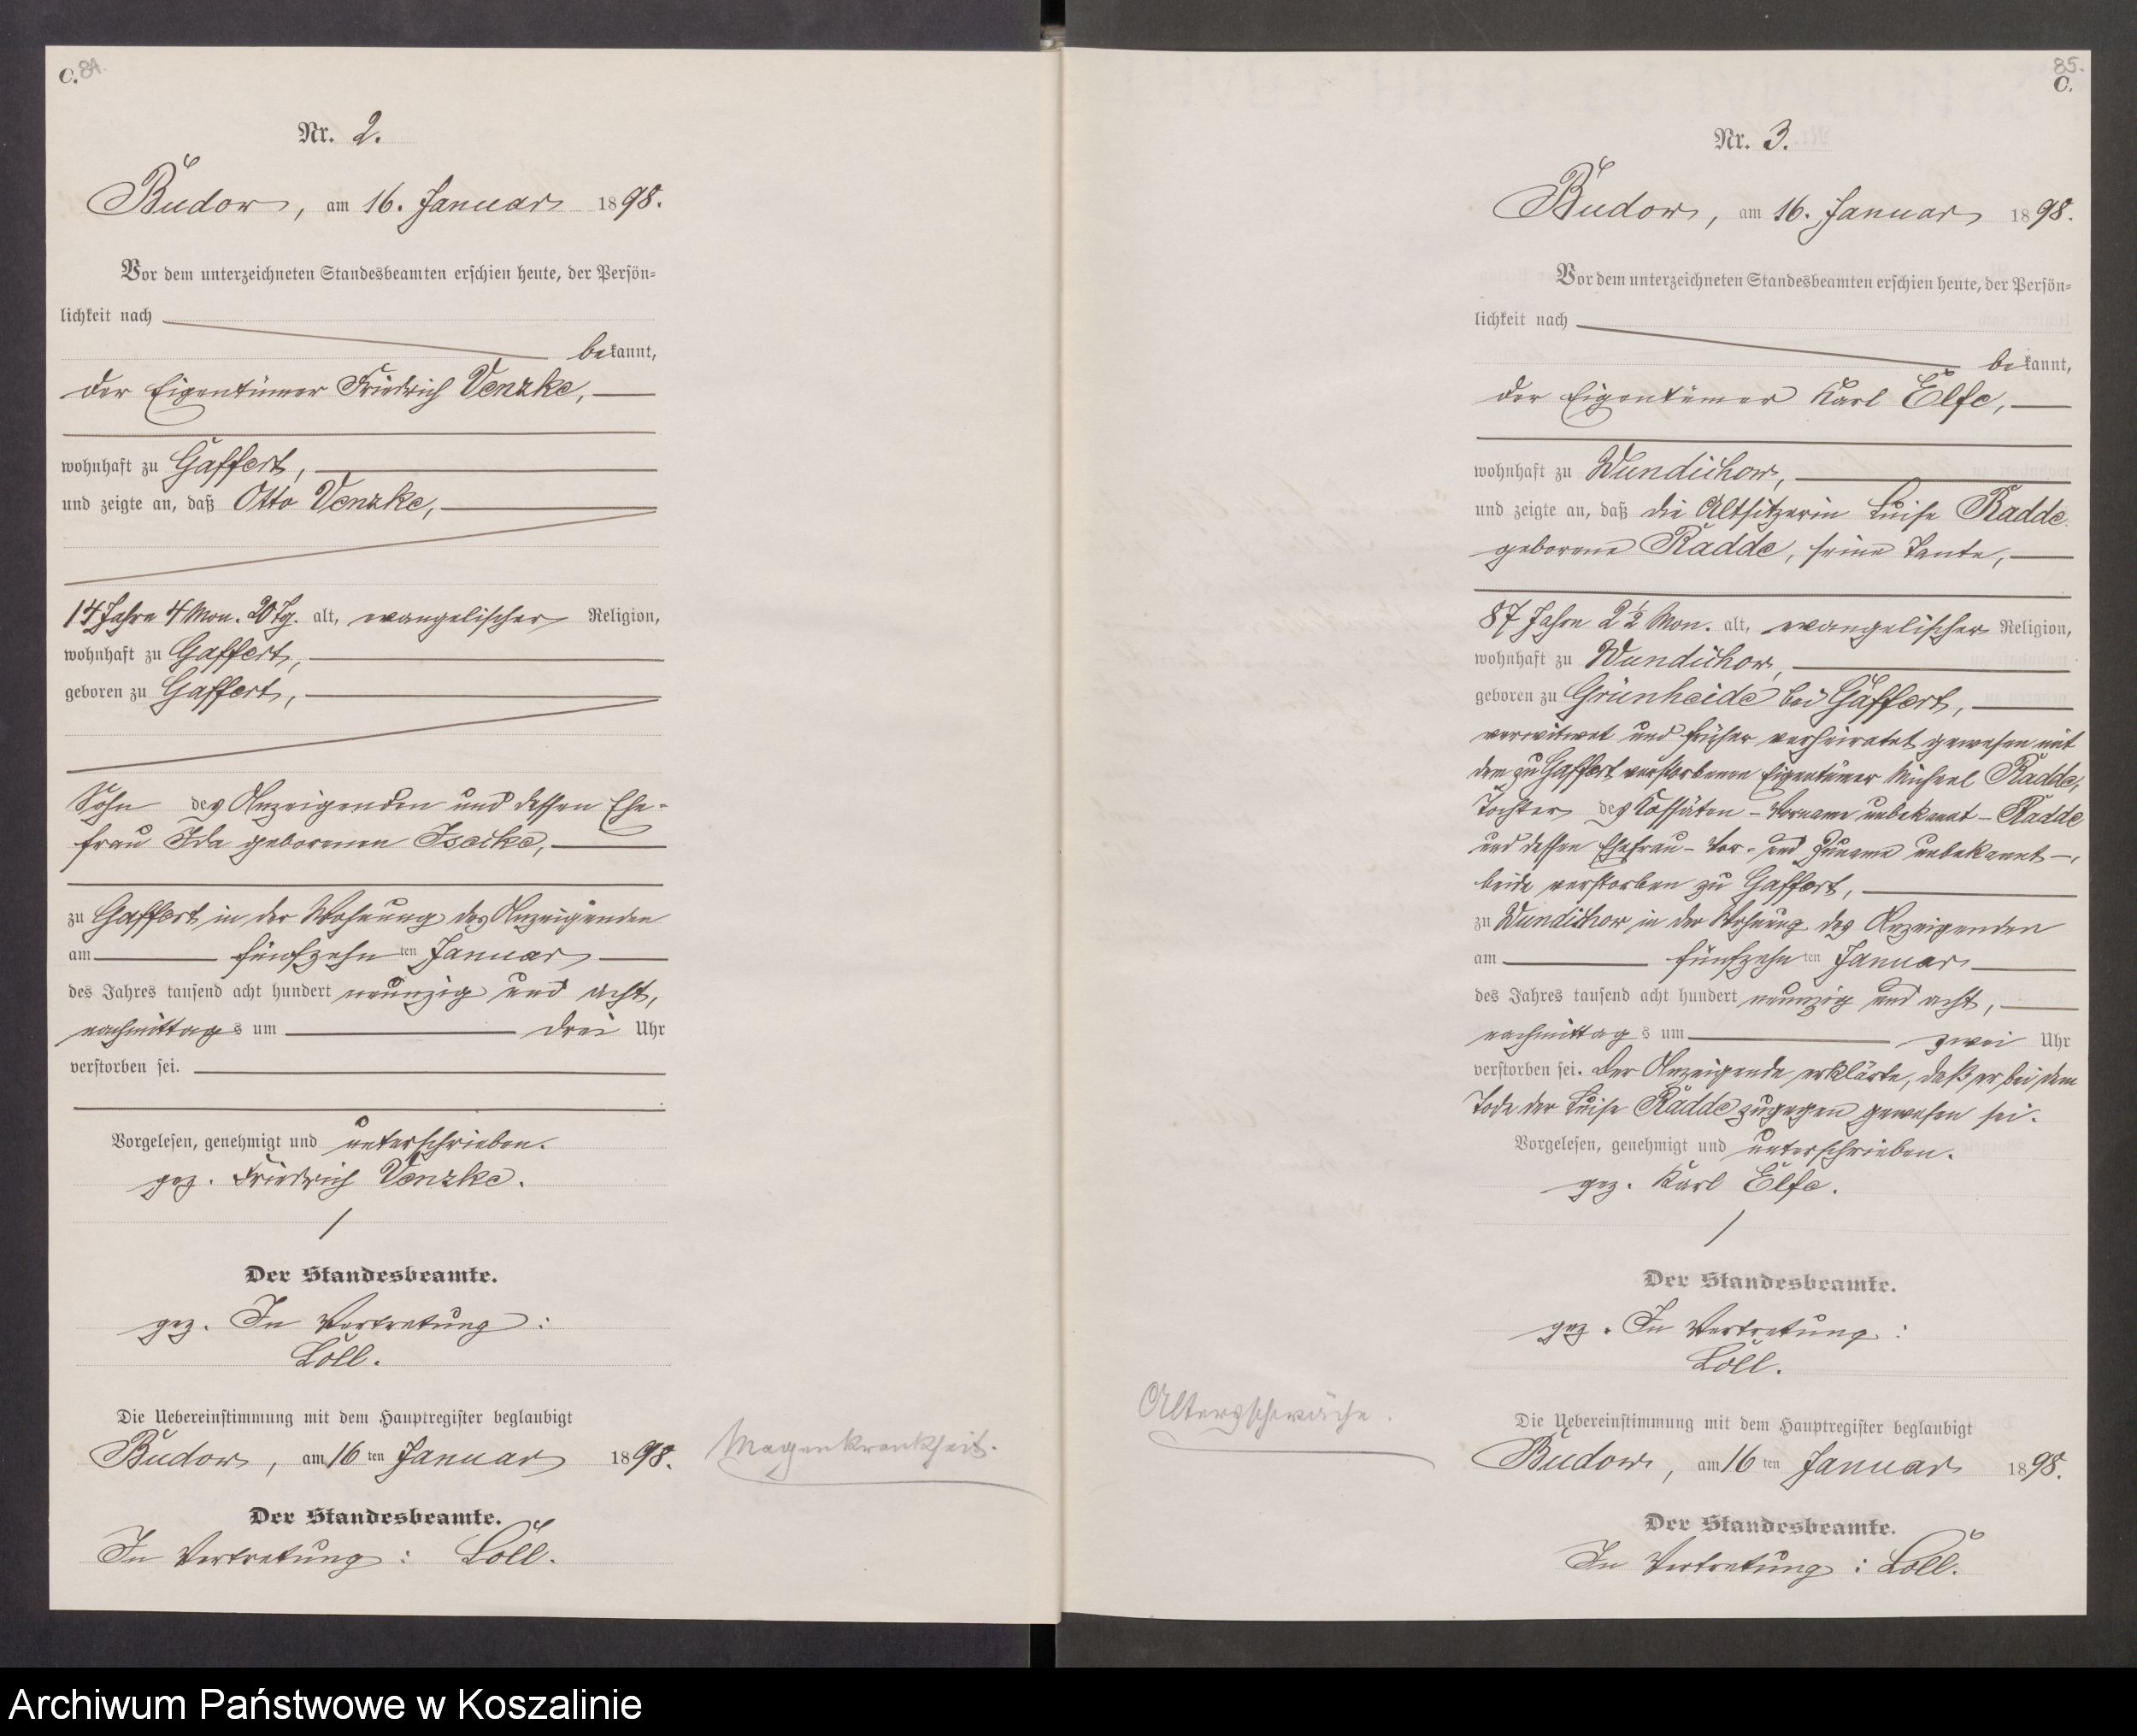 C. 84.
Nr. 2.
Budow, am 16. Januar 1898.
Vor dem unterzeichneten Standesbeamten erschien heute, der Persön-
lichkeit nach
bekannt,
der Eigentümer Friedrich Venzke,
wohnhaft zu Gaffert,
und zeigte an, daß Otto Venzke,
14 Jahre 4 Mon. 20 Tg. alt, evangelischer Religion,
wohnhaft zu Gaffert,
geboren zu Gaffert,
Sohn des Anzeigenden und dessen Ehe-
frau Ida geborenen
zu Gaffert in der Wohnung des Anzeigenden
am fünfzehnten Januar
des Jahres tausend acht hundert neunzig und acht,
nachmittags um drei Uhr
verstorben sei.
Vorgelesen, genehmigt und unterschrieben.
gez. Friedrich Venzke.
Der Standesbeamte.
gez. In Vertretung:
Löll.
Die Uebereinstimmung mit dem Hauptregister beglaubigt
Budow, am 16ten Januar 1898.
Magenkrankheit.
Der Standesbeamte.
In Vertretung: Löll.
85.
C.
Nr. 3.
Budow, am 16. Januar 1898.
Vor dem unterzeichneten Standesbeamten erschien heute, der Persön-
lichkeit nach
bekannt,
der Eigentümer Karl Elfe,
wohnhaft zu Wundichow,
und zeigte an, daß die Altsitzerin Luise Radde
geborene Radde, seine Tante,
87 Jahre 2½ Mon. alt, evangelischer Religion,
wohnhaft zu Wundichow,
geboren zu Grünheide bei Gaffert,
verwitwet und früher verheiratet gewesen mit
dem zu Gaffert verstorbenen Eigentümer Michael Radde,
Tochter des Kossäten - Vorname unbekannt - Radde
und dessen Ehefrau - Vor- und Zuname unbekannt -,
beide verstorben zu Gaffert,
zu Wundichow in der Wohnung des Anzeigenden
am fünfzehnten Januar
des Jahres tausend acht hundert neunzig und acht,
nachmittags um zwei Uhr
verstorben sei. Der Anzeigende erklärte, daß er bei dem
Tode der Luise Radde zugegen gewesen sei.
Vorgelesen, genehmigt und unterschrieben.
gez. Karl Elfe.
Der Standesbeamte.
gez. In Vertretung:
Löll.
Altersschwäche.
Die Uebereinstimmung mit dem Hauptregister beglaubigt
Budow, am 16ten Januar 1898.
Der Standesbeamte.
In Vertretung: Löll.
Archiwum Państwowe w Koszalinie